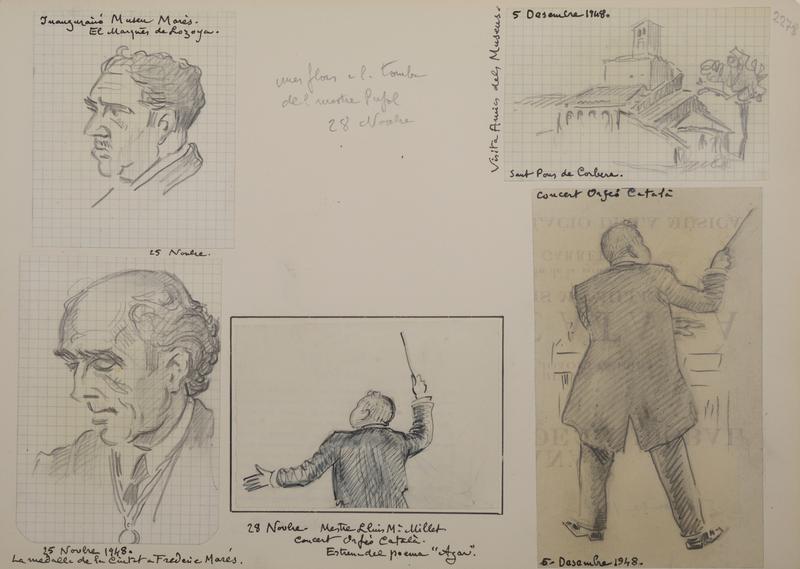 Inauguració Museu Marès.
El Marquès de Lozoya.
25 Novbre.
25 Novbre 1948.
La medalla de la Ciutat a Frederic Marés.
unes flors a la tomba
del mestre Pujol
28 Novbre
28 Novbre. Mestre Lluis Mª Millet
Concert Orfeó Català.
Estrena del poema "Agar".
Visita Amics dels Museus.
5 Desembre 1948.
2278
Sant Pons de Corbera.
Concert Orfeó Català
5 - Desembre 1948.